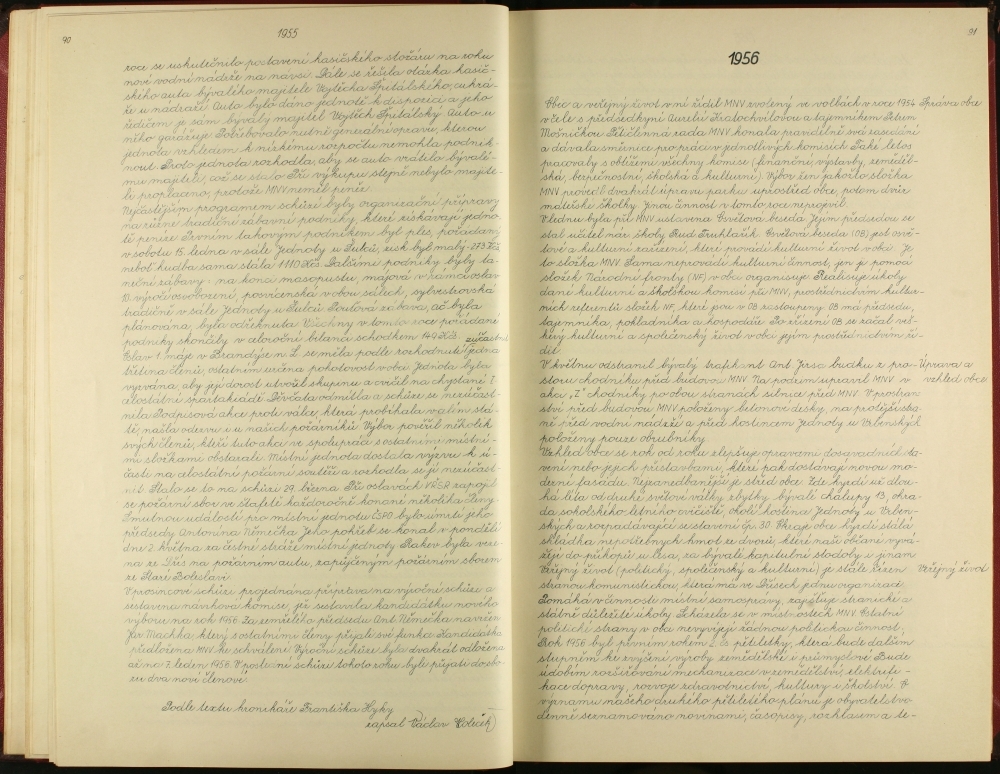 90
1955
roce se uskutečnilo postavení hasičského stožáru na roku
nové vodní nádrže na návsi. Dále se řešila otázka hasič-
ského auta bývalého majitele Vojtěcha Špitálského, cukrá-
ře u nádraží. Auto bylo dáno jednotě k disposici a jeho
řidičem je sám bývalý majitel Vojtěch Špitálský. Auto u
něho garážuje. Potřebovalo nutně generální opravu, kterou
jednota vzhledem k nízkému rozpočtu nemohla podnik-
nout. Proto jednota rozhodla, aby se auto vrátilo bývalé-
mu majiteli, což se stalo. Při výkupu stejně nebylo majite-
li proplaceno, protože MNV neměl peníze.
Nejčastějším programem schůzí byly organizační přípravy
na různé tradiční zábavní podniky, které získávají jedno-
tě peníze. Prvním takovým podnikem byl ples, pořádaný
v sobotu 15. ledna v sále Jednoty u Šulců, zisk byl malý - 273 Kčs
neboť hudba sama stála 1110 Kčs. Dalšími podniky byly ta-
neční zábavy - na konci masopustu, májová v rámci oslav
10. výročí osvobození, posvícenská v obou sálech, sylvestrovská
tradičně v sále Jednoty u Šulců. Pouťová zábava, ač byla
plánována, byla odřeknuta. Všechny v tomto roce pořádané
podniky skončily v celoroční bilanci schodkem 149 Kčs.
Oslav 1. máje v Brandýse n. L. se měla podle rozhodnutí zúčastnit jedna
třetina členů, ostatním určena pohotovost v obci. Jednota byla
vyzvána, aby její dorost utvořil skupinu a cvičil na chystané I.
celostátní spartakiádě. Děvčata odmítla a schůze se nezúčast-
nila. Podpisová akce proti válce, která probíhala v celém stá-
tě, našla odezvu i u našich požárníků. Výbor pověřil několik
svých členů, kteří tuto akci ve spolupráci s ostatními místní-
mi složkami obstarali. Místní jednota dostala výzvu k ú-
časti na celostátní požární soutěži a rozhodla se jí nezúčast-
nit. Stalo se to na schůzi 29. března. Při oslavách VŘSR zapojil
se požární sbor ve štafetě každoročně konané několika členy.
Smutnou událostí pro místní jednotu ČSPO bylo úmrtí jeho
předsedy Antonína Němečka. Jeho pohřeb se konal v pondělí
dne 2. května za čestné stráže místní jednoty. Rakev byla veze-
na ze Dřís na požárním autu, zapůjčeným požárním sborem
ze Staré Boleslavi.
V prosincové schůzi projednána příprava na výroční schůzi a
sestavena návrhová komise, jež sestavila kandidátku nového
výboru na rok 1956. Za zemřelého předsedu Ant. Němečka navržen
Jar. Machka, který s ostatními členy přijal své funkce. Kandidátka
předložena MNV ke schválení. Výroční schůze byla dvakrát odložena
až na 7. leden 1956. V poslední schůzi tohoto roku byli přijati do sbo-
ru dva noví členové.
Podle textu kronikáře Františka Hyky
zapsal Václav Holeček
91
1956
Obec a veřejný život v ní řídil MNV zvolený ve volbách v roce 1954
Správa obce
v čele s předsedkyní Aurelií Kratochvílovou a tajemníkem Petrem
Močničkou. Pětičlenná rada MNV konala pravidelně svá zasedání
a dávala směrnice pro práci v jednotlivých komisích. Také letos
pracovaly s obtížemi všechny komise (finanční, výstavby, zeměděl-
ská, bezpečnostní, školská a kulturní). Výbor žen jakožto složka
MNV provedl dvakrát úpravu parku uprostřed obce, potom dvůr
mateřské školky. Jinou činnost v tomto roce neprojevil.
V lednu byla při MNV ustavena Osvětová beseda. Jejím předsedou se
stal učitel nár. školy Rud. Truhlařík. Osvětová beseda (OB) jest osvě-
tové a kulturní zařízení, které provádí kulturní život v obci. Je
to složka MNV. Sama neprovádí kulturní činnost, jen ji pomocí
složek Národní fronty (NF) v obci organisuje. Realisuje úkoly
dané kulturní a školskou komisí při MNV, prostřednictvím kultur-
ních referentů složek NF, které jsou v OB zastoupeny. OB má předsedu,
tajemníka, pokladníka a hospodáře. Po zřízení OB se začal veš-
kerý kulturní a společenský život v obci jejím prostřednictvím ří-
dit.
V květnu odstranil bývalý trafikant Ant. Jirsa budku z pro-
Úprava a
storu chodníku před budovou MNV. Na podzim upravil MNV v
vzhled obce
akci „Z“ chodníky po obou stranách silnice před MNV. V prostran-
ství před budovou MNV položeny betonové desky, na protější stra-
ně před vodní nádrží a před hostincem Jednoty u Urbenských
položeny pouze obrubníky.
Vzhled obce se rok od roku zlepšuje opravami dosavadních sta-
vení nebo jejich přístavbami, které pak dostávají novou mo-
derní fasádu. Nejzanedbanější je střed obce. Zde hyzdí už dlou-
há léta od druhé světové války zbytky bývalé chalupy 13, ohra-
da sokolského letního cvičiště, okolí hostince Jednoty u Urben-
ských a rozpadávající se stavení čp. 30. Okraje obce hyzdí stálá
skládka nepotřebných hmot ze dvorů, které naši občané vyvá-
žejí do příkopů u lesa, za bývalé kapitulní stodoly a jinam.
Veřejný život (politický, společenský a kulturní) je stále řízen
Veřejný život
stranou komunistickou, která má ve Dřísech jednu organizaci.
Pomáhá v činnosti místní samosprávy, zajišťuje stranické a
státně důležité úkoly. Scházela se v místnostech MNV. Ostatní
politické strany v obci nevyvíjejí žádnou politickou činnost.
Rok 1956 byl prvním rokem 2. čs. pětiletky, která bude dalším
stupněm ke zvýšení výroby zemědělské i průmyslové. Bude
údobím rozšiřování mechanizace v zemědělství, elektrifi-
kace dopravy, rozvoje zdravotnictví, kultury i školství. O
významu našeho druhého pětiletého plánu je obyvatelstvo
denně seznamováno novinami, časopisy, rozhlasem a te-